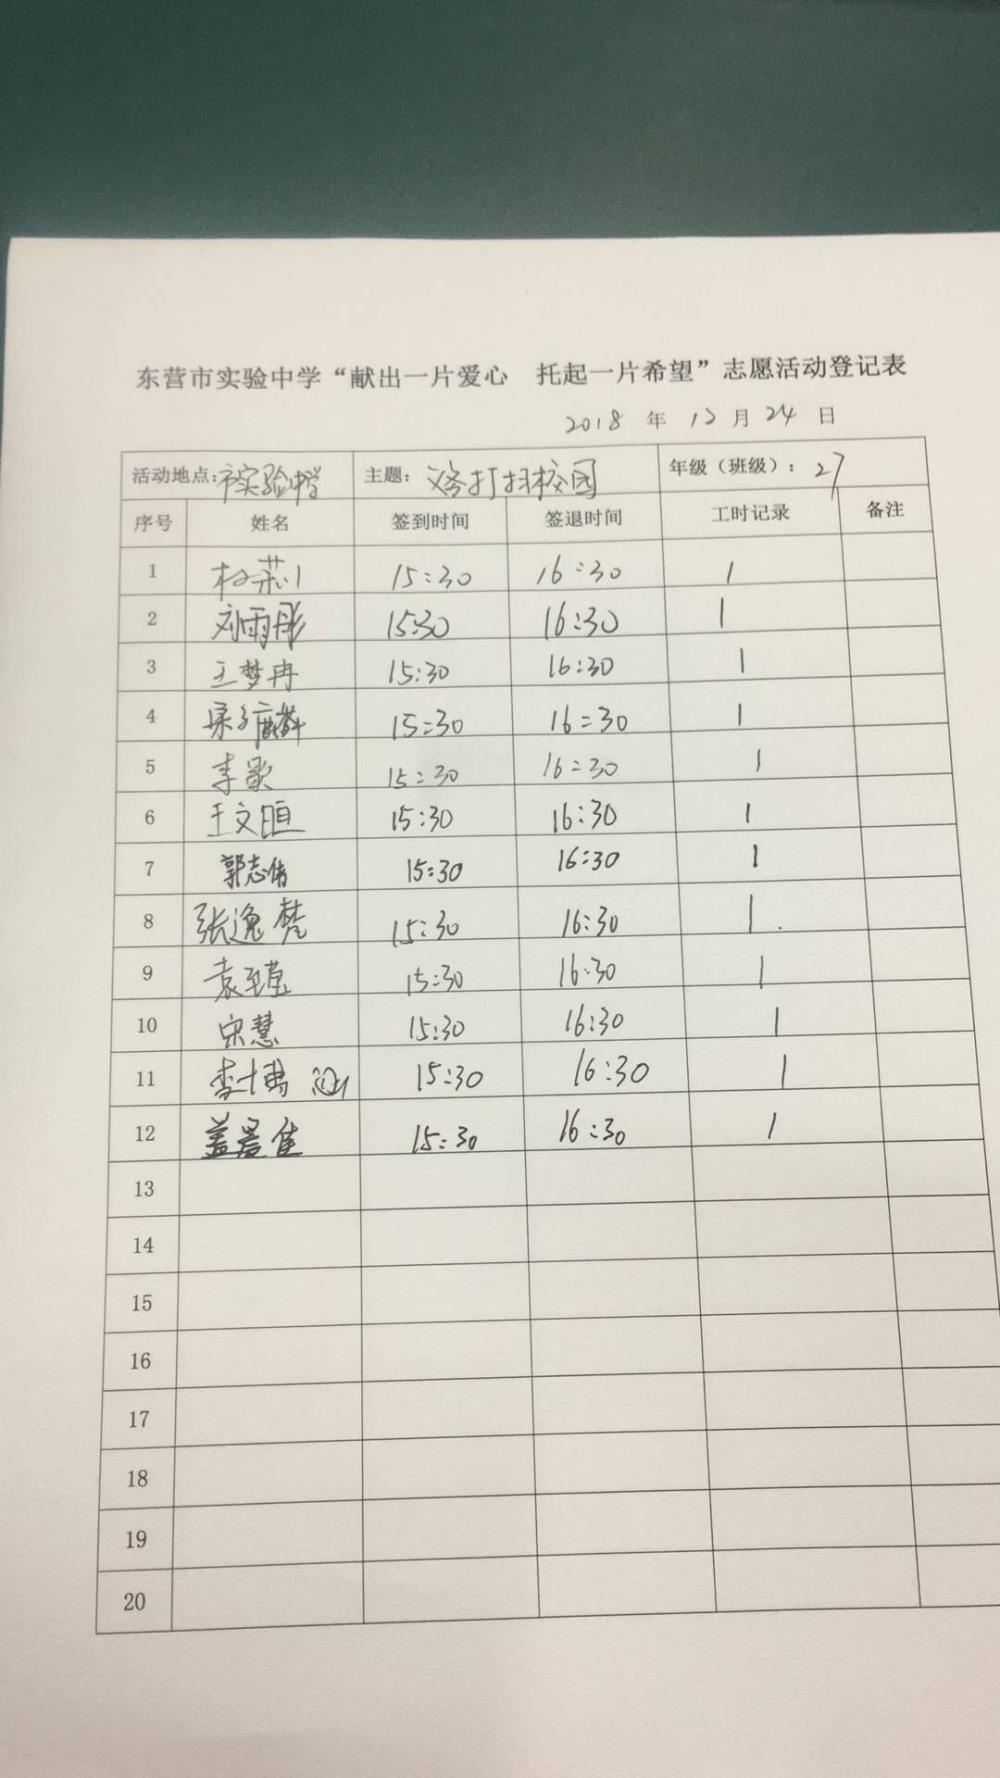 东营市实验中学“献出一片爱心 托起一片希望”志愿活动登记表
2018 年 12 月 24 日
活动地点:市实验中学 主题: 义务打扫校园 年级（班级）: 27
序号 姓名 签到时间 签退时间 工时记录 备注
1 15:30 16:30 1
2 刘雨彤 15:30 16:30 1
3 王梦冉 15:30 16:30 1
4 15:30 16:30 1
5 李歌 15:30 16:30 1
6 王文暄 15:30 16:30 1
7 郭志倩 15:30 16:30 1
8 张逸梵 15:30 16:30 1
9 袁 15:30 16:30 1
10 宋慧 15:30 16:30 1
11 李 15:30 16:30 1
12 盖景佳 15:30 16:30 1
13
14
15
16
17
18
19
20